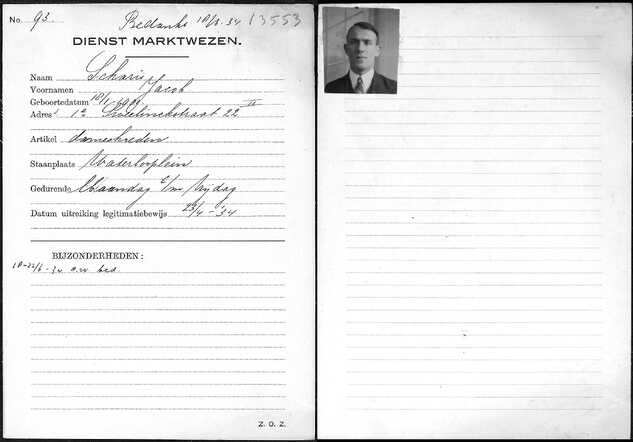 No. 93. Bedankt 10/8. 34 13553
DIENST MARKTWEZEN.
Naam Scharis
Voornamen Jacob
Geboortedatum 18/1
Adres: 1e Sweelinckstraat 22 II
Artikel dameskleeden
Staanplaats Waterlooplein
Gedurende Maandag t/m Vrijdag
Datum uitreiking legitimatiebewijs 23/4 - '34
BIJZONDERHEDEN:
34 a.w. bed
Z. O. Z.